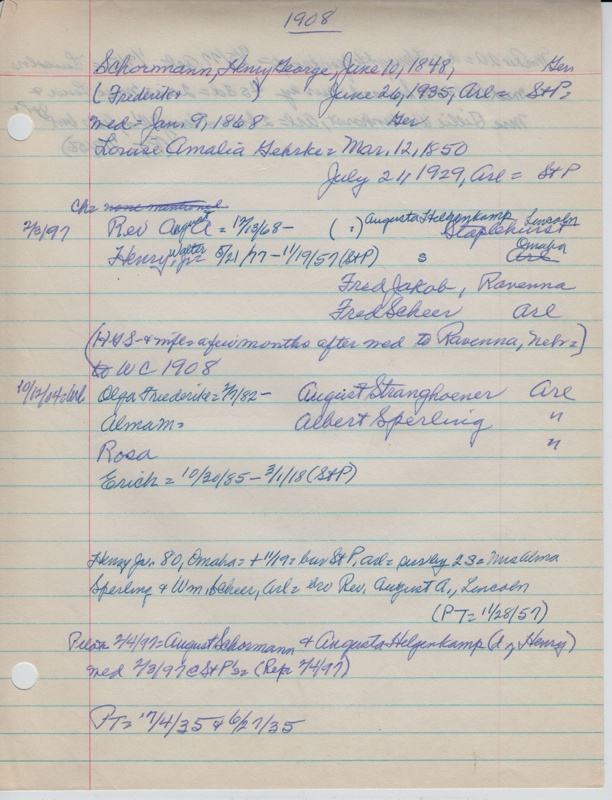 1908
Schormann, Henry George, June 10, 1848, Ger
(Frederike ) June 26, 1935, Arl = St P =
med - Jan. 9, 1868 Ger
Louise Amalia Gehrke = Mar. 12, 1850
July 21, 1929, Arl = St P
Ch = none mentioned
2/3/97 Rev August A = 12/13/68 - ( = ) Augusta Helgenkamp Staplehurst Lincoln
Henry, Jr Walter 5/21/77 - 11/19/57 (St P) s Arl Omaha
Fred Jakob, Ravenna
Fred Scheer Arl
(HGS + mfe = a few months after med to Ravenna, Nebr =)
to WC 1908
10/12/04 = Arl Olga Friederike = 2/7/82 - August Stranghoener Arl
Alma M = Albert Sperling "
Rosa "
Erich = 10/20/85 - 3/1/18 (St P)
Henry Jr. 80, Omaha = + 11/19 = bur St P, Arl = surv by 2 S = Mrs Alma
Sperling & Wm. Scheer, Arl = bro Rev. August A., Lincoln
(PT = 11/28/57)
Pilot 2/4/97 = August Schormann & Augusta Helgenkamp (d of Henry)
med 2/3/97 @ St P's = (Rep 2/4/97)
PT = 7/4/35 & 6/27/35